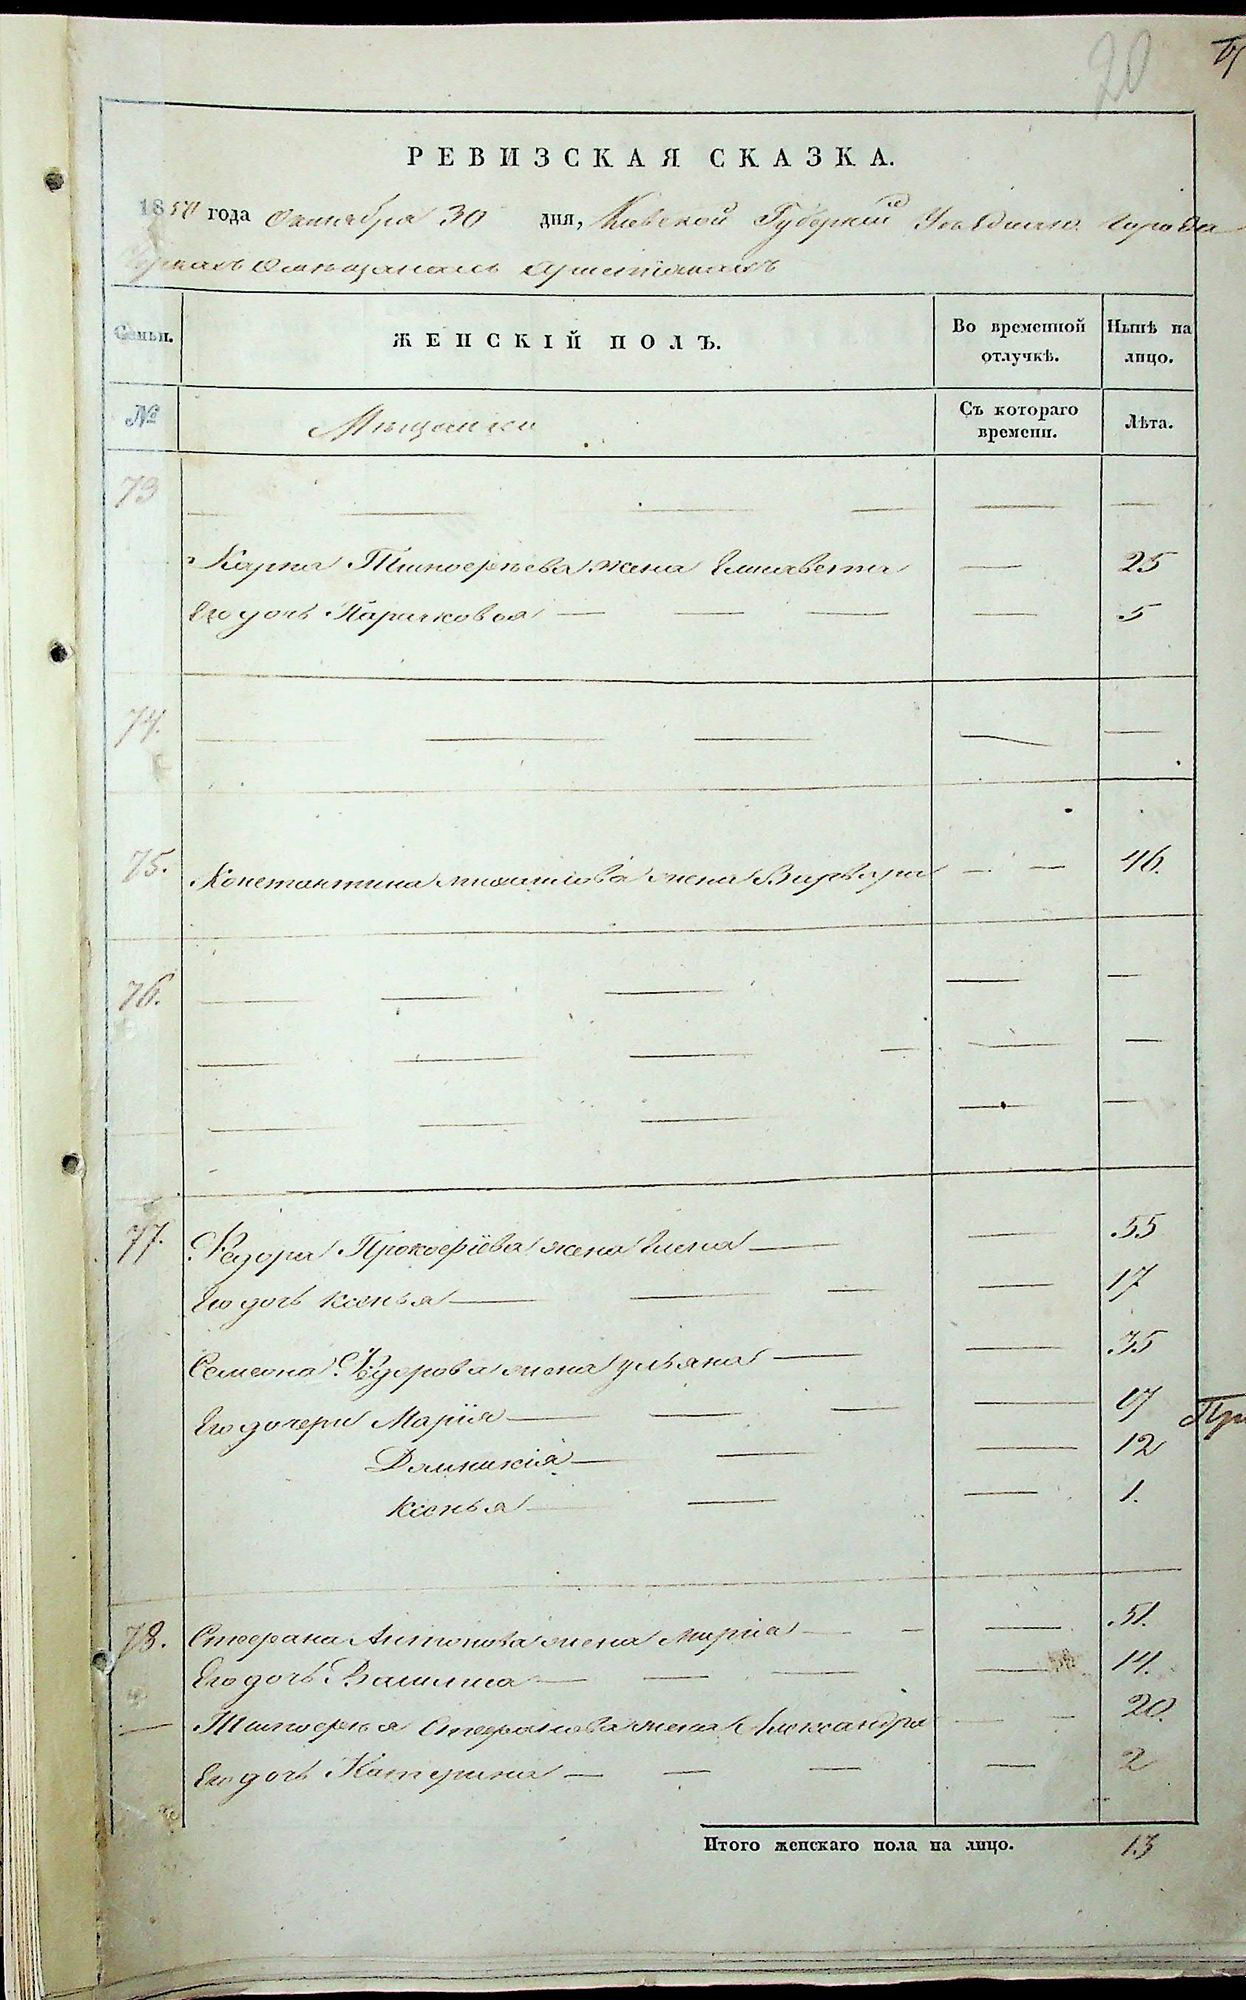 20
РЕВИЗСКАЯ СКАЗКА.
1850 года Октября 30 дня, Киевской Губерніи Уѣзднаго города
Черкасъ Омѣщанахъ христіянахъ
Семьи. ЖЕНСКІЙ ПОЛЪ. Во временной отлучкѣ. Нынѣ на лицо.
№ Мѣщанки Съ котораго времени. Лѣта.
73 — — — — — —
Карпа Тимоѳеѣева жена Елисавета — 25
Его дочь Парасковья — — — — 5
74. — — — — —
75. Константина михаилова жена Варвара — — 46.
76. — — — — —
— — — — — —
— — — — —
77. Федора Прокофіева жена Елена — — 55
Его дочь Ксенья — — — — 17
Семена Федорова жена ульяна — — 35
Его дочери Марія — — — — 17
Домникія — — — 12
Ксенья — — — 1.
78. Стефана Антонова жена Марія — — — 51.
Его дочь Василиса — — — — 14.
— Тимофея Стефанова жена Александра — — 20.
Его дочь Катерина — — — — 2
Итого женскаго пола на лицо. 13